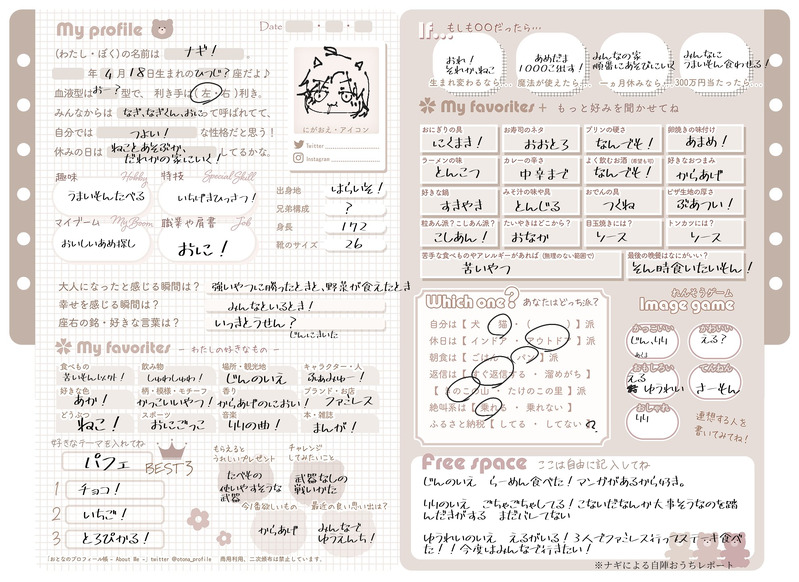 My profile
Date
(わたし・ぼく)の名前は ナギ!
年 4 月 18 日生まれの ひつじ? 座だよ♪
血液型は おー? 型で、 利き手は( 左・右 )利き。
みんなからは なぎ、なぎくん、おに って呼ばれてて、
自分では つよい! な性格だと思う!
休みの日は ねことあそぶか、
だれかの家にいく! してるかな。
にがおえ・アイコン
Twitter
Instagram
趣味 Hobby
うまいもんたべる
特技 Special Skill
いちげきひっさつ!
マイブーム My Boom
おいしいあめ探し
職業や肩書 Job
おに!
出身地 はらいそ!
兄弟構成 ?
身長 172
靴のサイズ 26
大人になったと感じる瞬間は? 強いやつに勝ったときと、野菜が食えたとき
幸せを感じる瞬間は? みんなといるとき!
座右の銘・好きな言葉は? いっきとうせん?
じんにきいた
My favorites ― わたしの好きなもの ―
食べもの 苦いもん以外!
飲み物 しゅわしゅわ!
場所・観光地 じんのいえ
キャラクター・人 ふぁみゅー!
好きな色 あか!
柄・模様・モチーフ かっこいいやつ!
香り からあげのにおい!
ブランド・お店 ファミレス
どうぶつ ねこ!
スポーツ おにごっこ
音楽 リリの曲!
本・雑誌 まんが!
好きなテーマを入れてね
パフェ
BEST3
1 チョコ!
2 いちご!
3 とろぴかる!
もらえると
うれしいプレゼント
たべもの
使いやすそうな
武器
チャレンジ
してみたいこと
武器なしの
戦いかた
今1番欲しいもの
からあげ
最近の良い思い出は?
みんなで
ゆうえんち!
「おとなのプロフィール帳 - About Me -」 twitter @otona_profile 商用利用、二次頒布は禁止しています。
If... もしも〇〇だったら…
おれ!
それか、ねこ
生まれ変わるなら…
あめだま
1000こ出す!
魔法が使えたら…
みんなの家
順番にあそびにいく
一ヵ月休みなら…
みんなに
うまいもん食わせる!
300万円当たったら…
My favorites + もっと好みを聞かせてね
おにぎりの具 にくまき!
お寿司のネタ おおとろ
プリンの硬さ なんでも!
卵焼きの味付け あまめ!
ラーメンの味 とんこつ
カレーの辛さ 中辛まで
よく飲むお酒 なんでも!
好きなおつまみ からあげ
好きな鍋 すきやき
みそ汁の味や具 とんじる
おでんの具 つくね
ピザ生地の厚さ ぶあつい!
粒あん派?こしあん派? こしあん!
たいやきはどこから? おなか
目玉焼きには? ソース
トンカツには? ソース
苦手な食べものやアレルギーがあれば (無理のない範囲で) 苦いやつ
最後の晩餐はなにがいい? そん時食いたいもん!
Which one? あなたはどっち派?
自分は【 犬・猫・( ) 】派
休日は【 インドア・アウトドア 】派
朝食は【 ごはん・パン 】派
返信は【 すぐ返信する・溜めがち 】
【 きのこの山・たけのこの里 】派
絶叫系は【 乗れる・乗れない 】
ふるさと納税【 してる・してない 】
れんそうゲーム
Image game
かっこいい じん、リリ
かわいい える?
おもしろい える
ゆうわい
てんねん さーもん
おしゃれ リリ
連想する人を
書いてみてね!
Free space ここは自由に記入してね
じんのいえ らーめん食べた!マンガがあるから好き。
リリのいえ ごちゃごちゃしてる!こないだなんか大事そうなのを踏
んだきがする まだバレてない
ゆうわいのいえ えるがいる!3人でファミレス行ってステーキ食べ
た!!今度はみんなで行きたい!
※ナギによる自陣おうちレポート